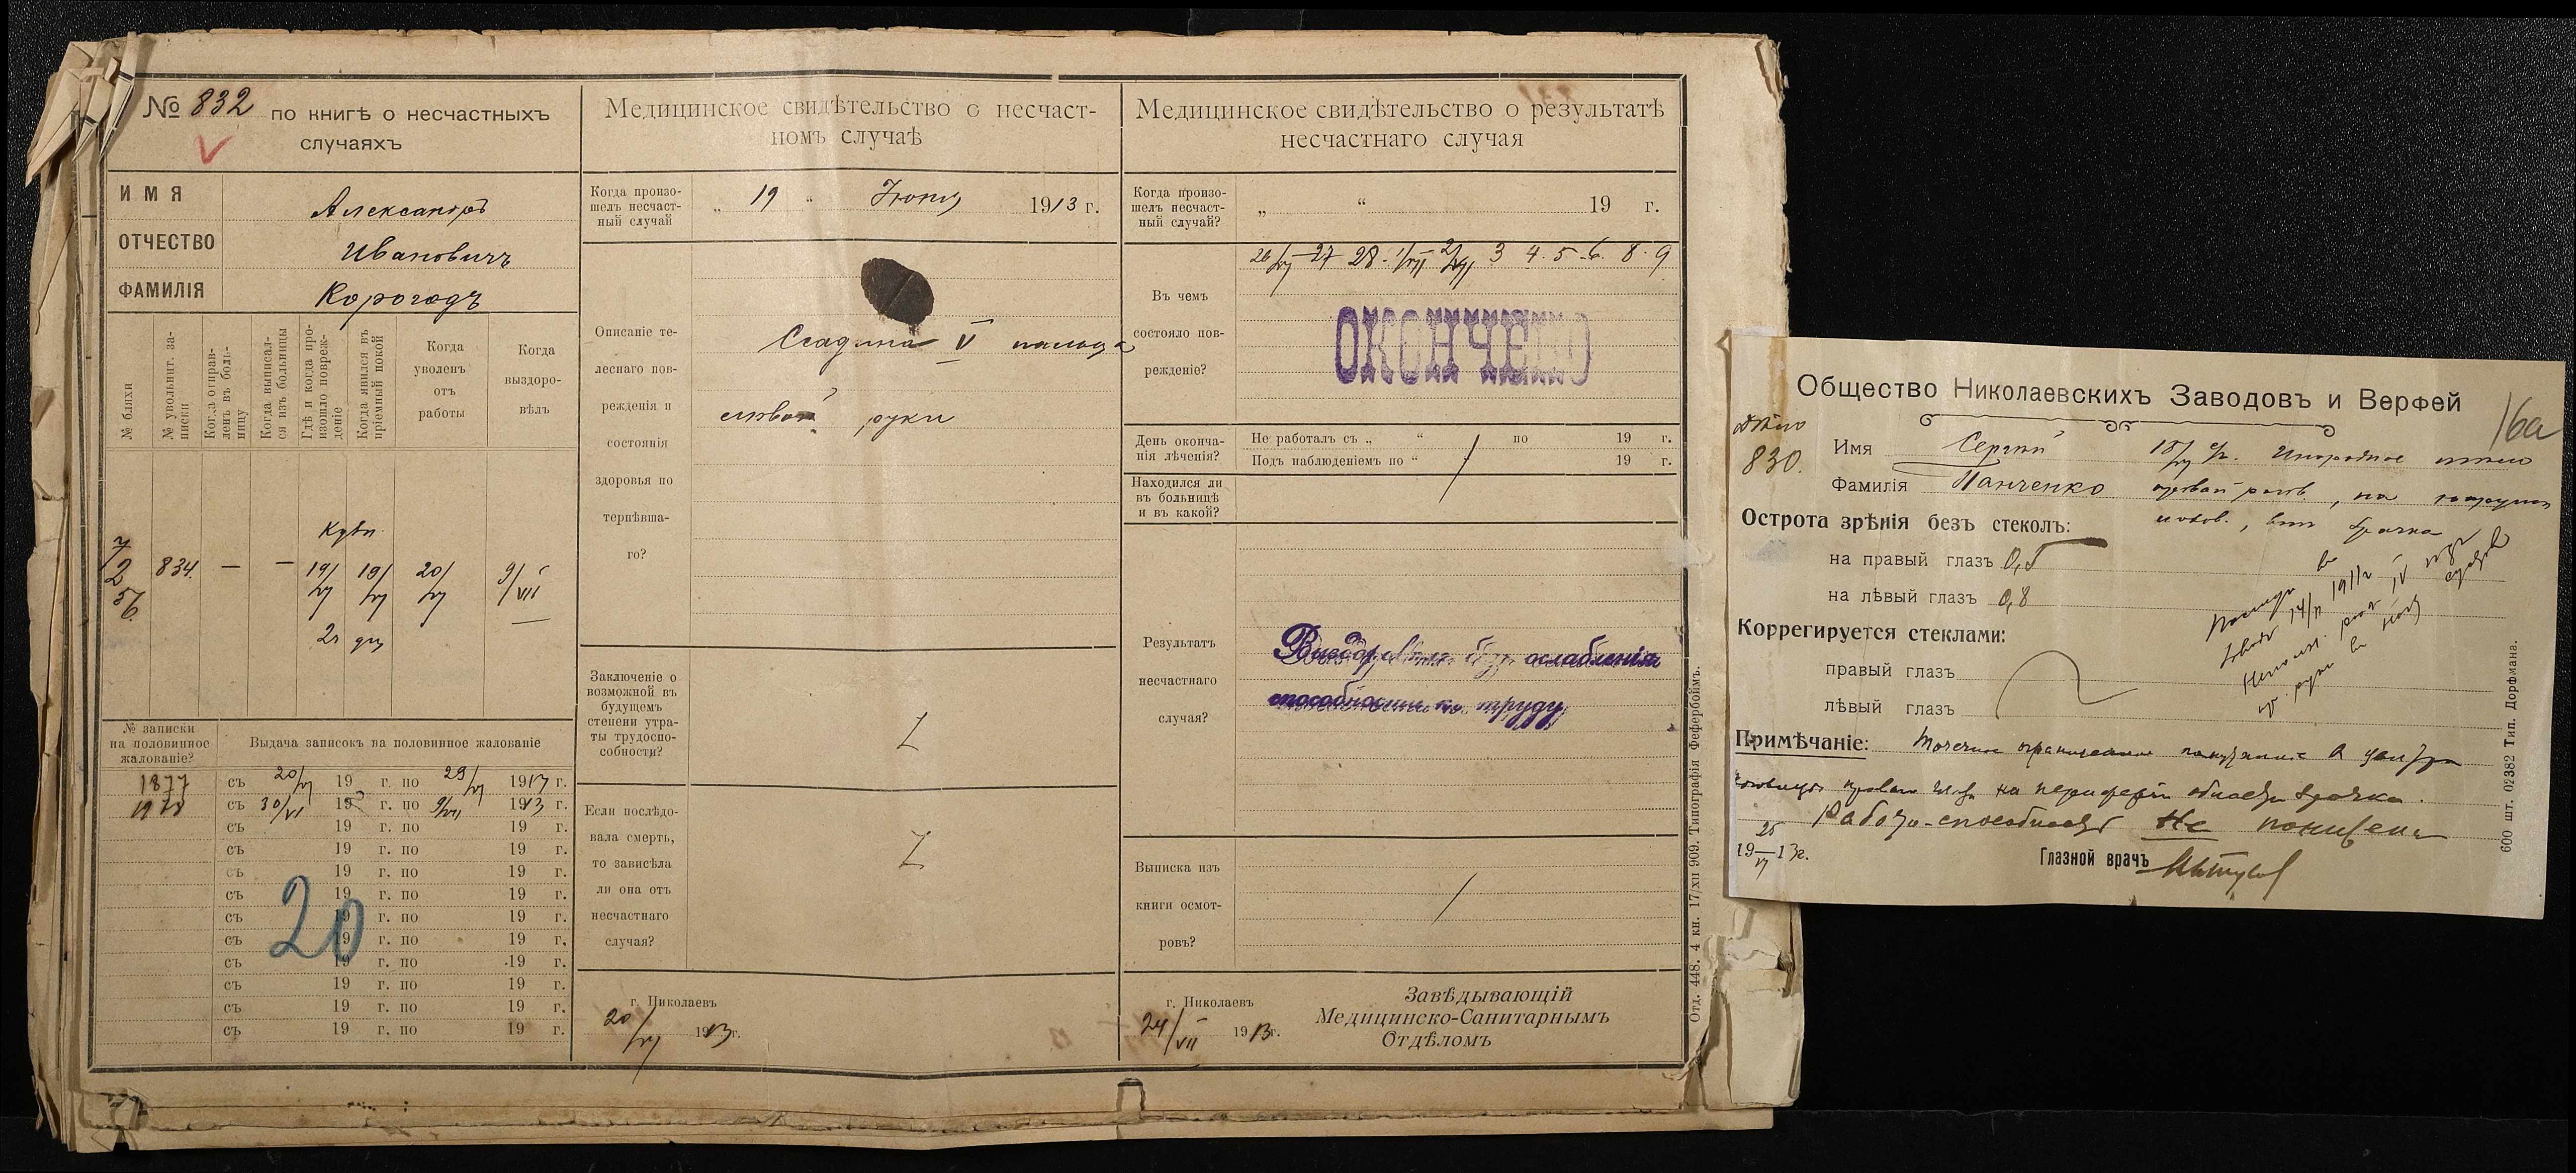 № 832 по книгѣ о несчастныхъ
случаяхъ
ИМЯ Александръ
ОТЧЕСТВО Ивановичъ
ФАМИЛІЯ Корогодъ
№ бляхи
№ увольнит. за-
писки
Когда отправ-
ленъ въ боль-
ницу
Когда выписал-
ся изъ больницы
Гдѣ и когда про-
изошло повреж-
деніе
Когда явился въ
пріемный покой
Когда
уволенъ
отъ
работы
Когда
выздоро-
вѣлъ
834. — — 19/VI 19/VI 20/VI 9/VII
№ записки
на половинное
жалованіе?
Выдача записокъ на половинное жалованіе
1877 съ 20/VI 19 г. по 29/VI 1913 г.
1978 съ 30/VI 193 г. по 9/VII 1913 г.
съ 19 г. по 19 г.
съ 19 г. по 19 г.
съ 19 г. по 19 г.
съ 19 г. по 19 г.
съ 19 г. по 19 г.
съ 19 г. по 19 г.
съ 19 г. по 19 г.
съ 19 г. по 19 г.
съ 19 г. по 19 г.
съ 19 г. по 19 г.
20
Медицинское свидѣтельство о несчаст-
номъ случаѣ
Когда произо-
шелъ несчаст-
ный случай
„ 19 “ Іюня 1913 г.
Описаніе те-
леснаго пов-
режденія и
состоянія
здоровья по
терпѣвша-
го?
Ссадина V пальца
лѣвой руки
Заключеніе о
возможной въ
будущемъ
степени утра-
ты трудоспо-
собности?
Если послѣдо-
вала смерть,
то зависѣла
ли она отъ
несчастнаго
случая?
г. Николаевъ
20/VI 1913г.
Медицинское свидѣтельство о результатѣ
несчастнаго случая
Когда произо-
шелъ несчаст-
ный случай?
„ “ 19 г.
26/VI 27 28 1/VII 2/VII 3 4 5 6 8 9
Въ чемъ
состояло пов-
режденіе?
ОКОНЧЕНО
День оконча-
нія лѣченія?
Не работалъ съ „ “ по 19 г.
Подъ наблюденіемъ по “ 19 г.
Находился ли
въ больницѣ
и въ какой?
Результатъ
несчастнаго
случая?
Выздоровѣлъ безъ ослабленія
способности къ труду
Выписка изъ
книги осмот-
ровъ?
г. Николаевъ
24/VII 1913г.
Завѣдывающій
Медицинско-Санитарнымъ
Отдѣломъ
Отд. 448. 4 кн. 17/XII 909. Типографія Фефербоймъ.
Общество Николаевскихъ Заводовъ и Верфей
16а
Дѣло
830.
Имя Сергѣй
Фамилія Панченко
Острота зрѣнія безъ стеколъ:
на правый глазъ
на лѣвый глазъ 0,8
Коррегируется стеклами:
правый глазъ
лѣвый глазъ
Примѣчаніе: Точечное ограниченное помутнѣніе
на периферіи области зрачка.
Работо-способность не понижена
25/VI 1913г.
Глазной врачъ
600 шт. 02382 Тип. Дорфмана.